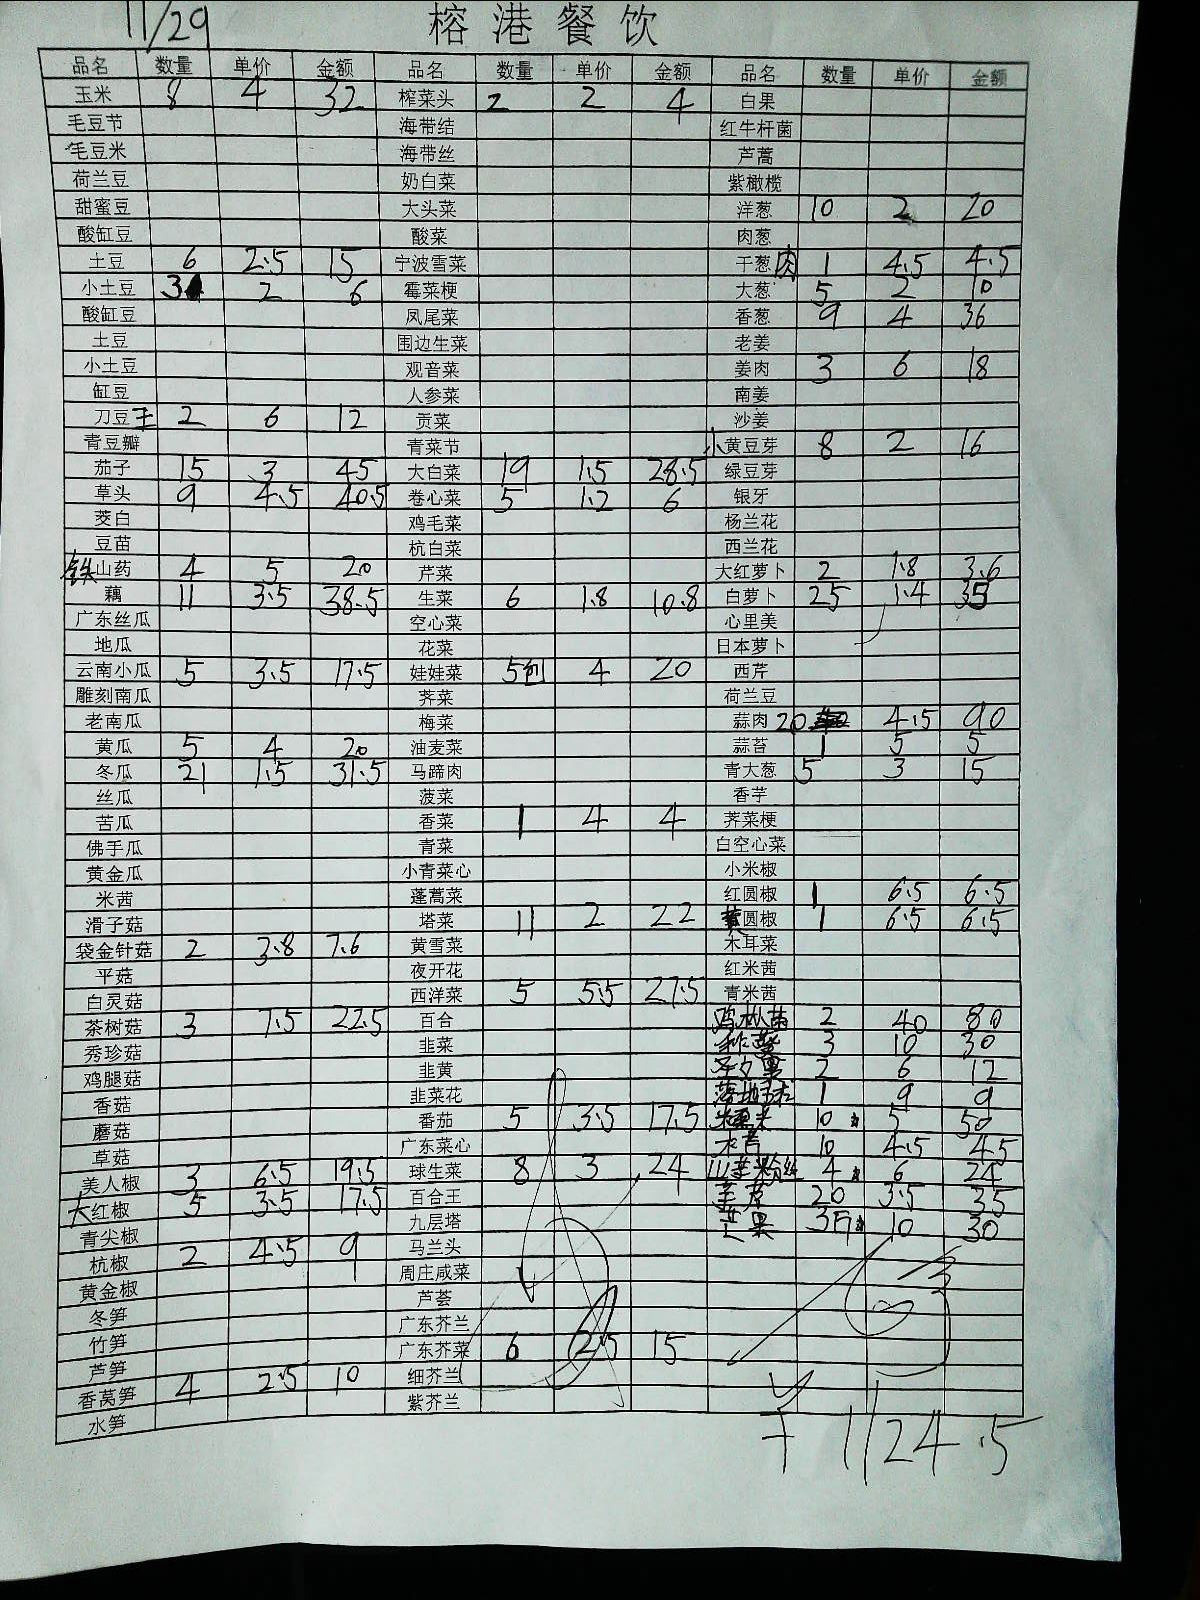 11/29
榕港餐饮
品名 数量 单价 金额 品名 数量 单价 金额 品名 数量 单价 金额
玉米 8 4 32 榨菜头 2 2 4 白果
毛豆节 海带结 红牛杆菌
毛豆米 海带丝 芦蒿
荷兰豆 奶白菜 紫橄榄
甜蜜豆 大头菜 洋葱 10 2 20
酸缸豆 酸菜 肉葱
土豆 6 2.5 15 宁波雪菜 干葱肉 1 4.5 4.5
小土豆 3 2 6 霉菜梗 大葱 5 2 10
酸缸豆 凤尾菜 香葱 9 4 36
土豆 围边生菜 老姜
小土豆 观音菜 姜肉 3 6 18
缸豆 人参菜 南姜
刀豆王 2 6 12 贡菜 沙姜
青豆瓣 青菜节 小黄豆芽 8 2 16
茄子 15 3 45 大白菜 19 1.5 28.5 绿豆芽
草头 9 4.5 40.5 卷心菜 5 1.2 6 银牙
茭白 鸡毛菜 杨兰花
豆苗 杭白菜 西兰花
铁山药 4 5 20 芹菜 大红萝卜 2 1.8 3.6
藕 11 3.5 38.5 生菜 6 1.8 10.8 白萝卜 25 1.4 35
广东丝瓜 空心菜 心里美
地瓜 花菜 日本萝卜
云南小瓜 5 3.5 17.5 娃娃菜 5包 4 20 西芹
雕刻南瓜 荠菜 荷兰豆
老南瓜 梅菜 蒜肉 20 4.5 90
黄瓜 5 4 20 油麦菜 蒜苔 1 5 5
冬瓜 21 1.5 31.5 马蹄肉 青大葱 5 3 15
丝瓜 菠菜 香芋
苦瓜 香菜 1 4 4 荠菜梗
佛手瓜 青菜 白空心菜
黄金瓜 小青菜心 小米椒
米茜 蓬蒿菜 红圆椒 1 6.5 6.5
滑子菇 塔菜 11 2 22 黄圆椒 1 6.5 6.5
袋金针菇 2 3.8 7.6 黄雪菜 木耳菜
平菇 夜开花 红米茜
白灵菇 西洋菜 5 5.5 27.5 青米茜
茶树菇 3 7.5 22.5 百合 鸡枞菌 2 40 80
秀珍菇 韭菜 3 10 30
鸡腿菇 韭黄 2 6 12
香菇 韭菜花 1 9 9
蘑菇 番茄 5 3.5 17.5 10 5 50
草菇 广东菜心 10 4.5 45
美人椒 3 6.5 19.5 球生菜 8 3 24 4 6 24
大红椒 5 3.5 17.5 百合王 20 3.5 35
青尖椒 九层塔 芒果 10 30
杭椒 2 4.5 9 马兰头
黄金椒 周庄咸菜
冬笋 芦荟
竹笋 广东芥兰
芦笋 广东芥菜 6 2.5 15
香莴笋 4 2.5 10 细芥兰
水笋 紫芥兰
1124.5